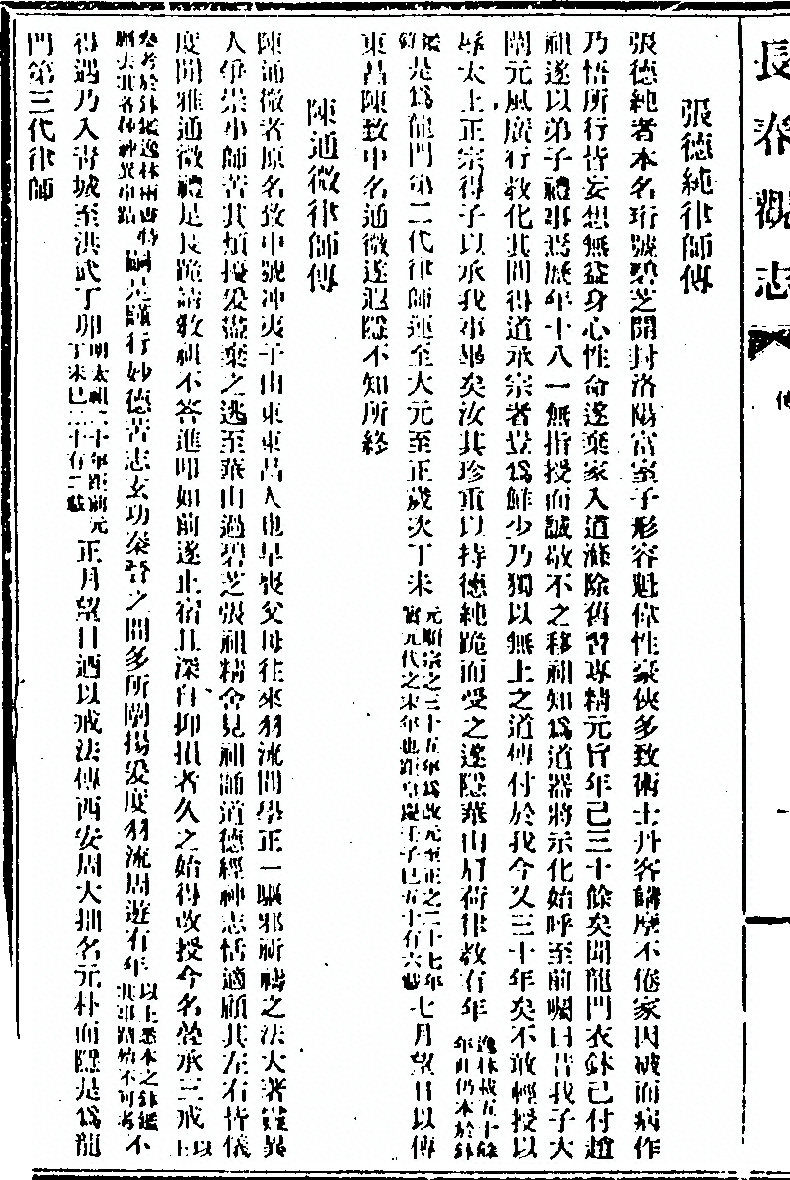 長春觀志
傳
一
張德純律師傳
張德純者本名珩號碧芝開封洛陽富室子形容魁偉性豪俠多致術士丹客歸麾不倦家因破而病作
乃悟所行皆妄想無益身心性命遂棄家入道滌除舊習專精元旨年已三十餘矣聞龍門衣鉢已付趙
祖遂以弟子禮事焉歷年十八一無指授而誠敬不之移祖知爲道器將示化始呼至前囑曰昔我子大
闡元風廣行教化其間得道承宗者豈爲鮮少乃獨以無上之道傳付於我今又三十年矣不敢輕授以
辱太上正宗得子以承我事畢矣汝其珍重以持德純跪而受之遂隱華山肩荷律教有年逸林載五十餘年此仍本於鉢
鑑是爲龍門第二代律師運至大元至正歲次丁未元順宗之三十五年爲改元至正之二十七年實元代之末年也距皇慶壬子已五十有六載七月望日以傳
東昌陳致中名通微遂退隱不知所終
陳通微律師傳
陳通微者原名致中號冲夷子山東東昌人也早喪父母往來羽流間學正一驅邪祈禱之法大著靈異
人爭崇事師苦其煩擾爰盡棄之逃至華山過碧芝張祖精舍見祖誦道德經神志恬適顧其左右皆儀
度閒雅通微禮足長跪請教祖不答進叩如前遂止宿且深自抑損者久之始得改授今名並承三戒以上
參考於鉢鑑逸林兩書特刪去其各種神異事蹟嗣是謹行妙德苦志玄功秦晉之間多所闡揚爰度羽流周遊有年以上悉本之鉢鑑其事蹟始不可考不
得遇乃入靑城至洪武丁卯明太祖二十年距前元丁未已二十有二載正月望日迺以戒法傳西安周大拙名元朴而隱是爲龍
門第三代律師